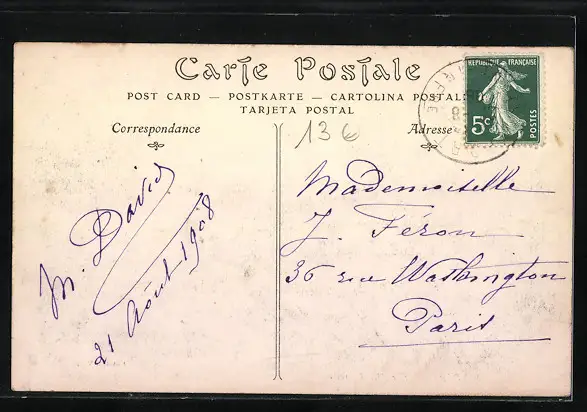 Carte Postale
POST CARD — POSTKARTE — CARTOLINA POSTALE
TARJETA POSTAL
Correspondance
Adresse
13 €
REPUBLIQUE FRANÇAISE
5c
POSTES
M. David
21 Août 1908
Mademoiselle
J. Féron
36 rue Washington
Paris